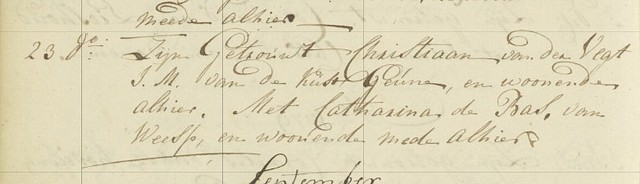 meede alhier
23 do: Zijn Getrouwt Christiaan van der Vegt
J. M. van de kust Geúne, en woonende
alhier. Met Catharina de Bas, van
Weesp, en woonende mede alhier
September